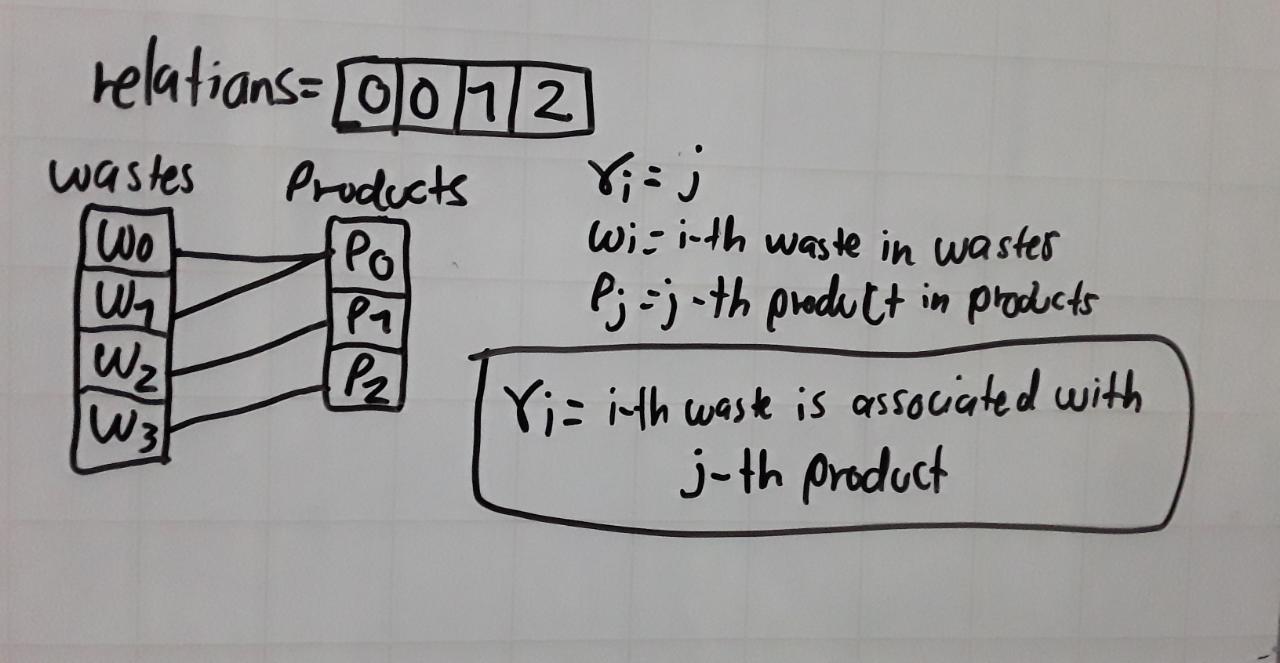 relations= 0 0 1 2
wastes Products
W0 P0
W1 P1
W2 P2
W3
ri = j
wi = i-th waste in wastes
Pj = j-th product in products
ri = i-th waste is associated with
j-th product